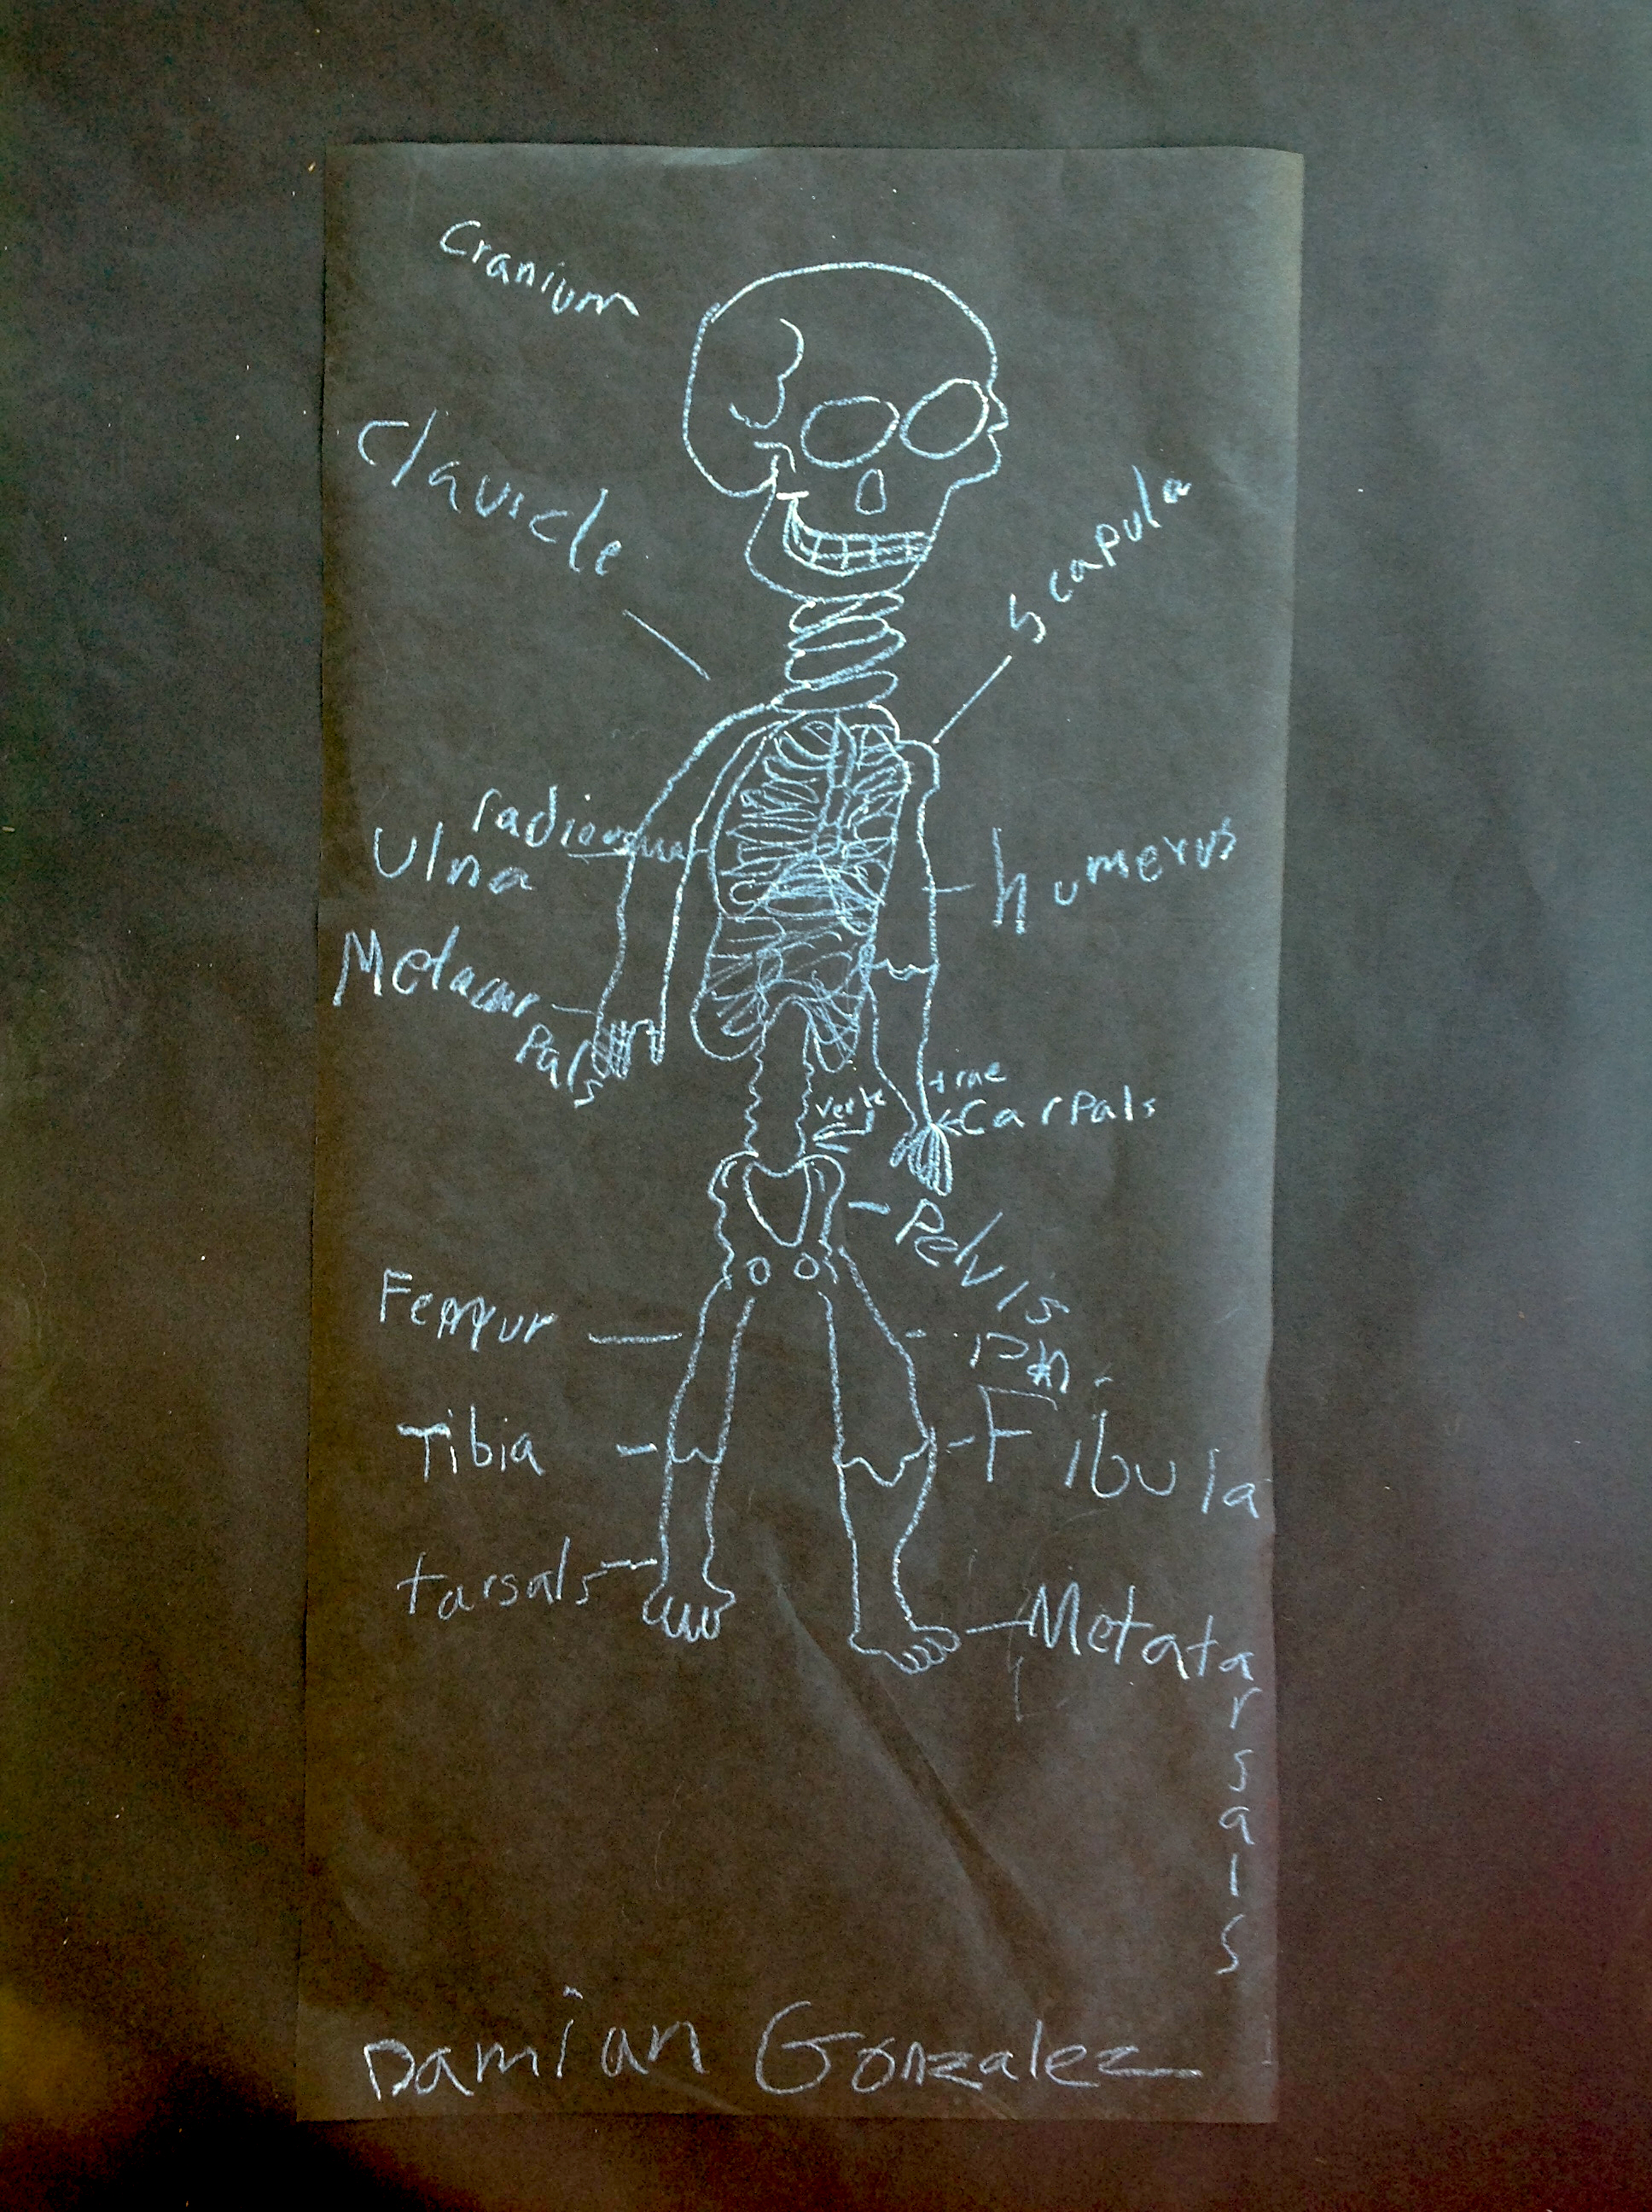 Cranium
Clavicle
scapula
Ulna
humerus
Metacar
pals
verte
Carpals
Pelvis
Femur
Tibia
Fibula
tarsals
Metatarsals
Damian Gonzalez